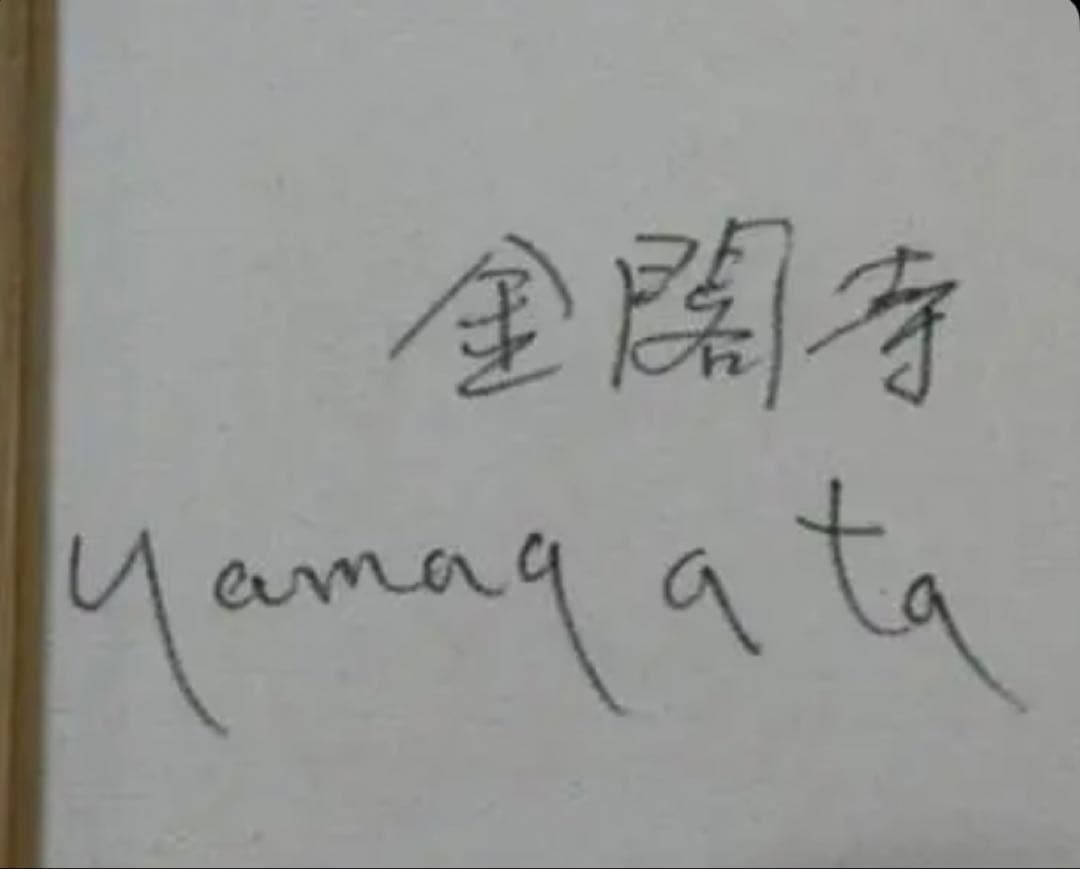 金閣寺
yamagata